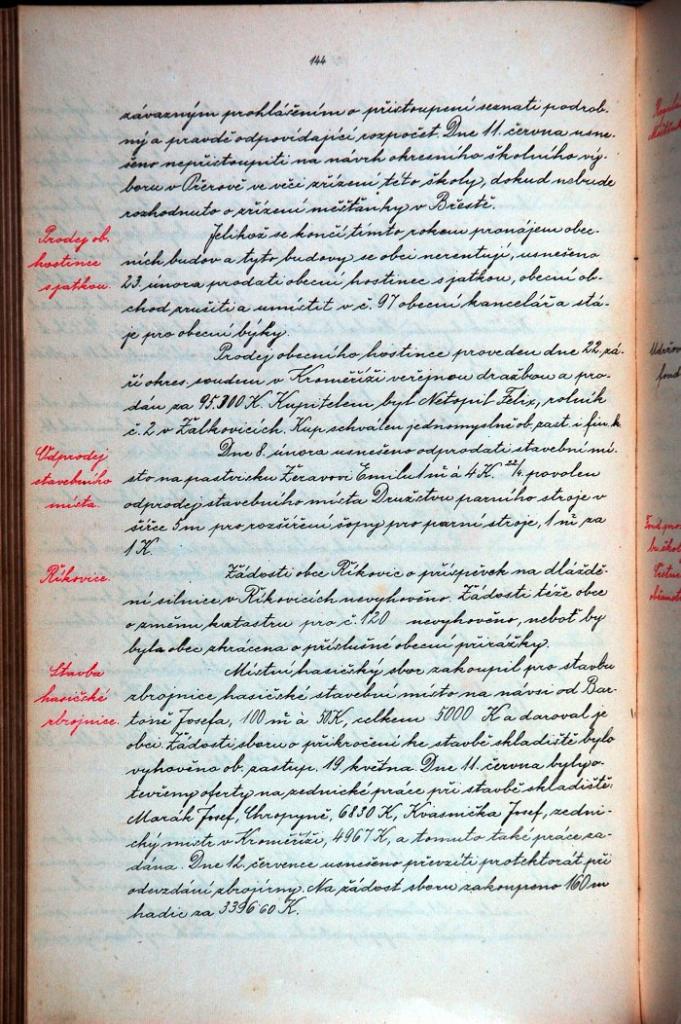 144
závazným prohlášením o přistoupení seznati podrob-
ný a pravdě odpovídající rozpočet. Dne 11. června usne-
šeno nepřistoupiti na návrh okresního školního vý-
boru v Přerově ve věci zřízení této školy, dokud nebude
rozhodnuto o zřízení měšťanky v Břestě.
Prodej ob.
hostince
s jatkou.
Jelikož se končí tímto rokem pronájem obec-
ních budov a tyto budovy se obci nerentují, usneseno
23. února prodati obecní hostinec s jatkou, obecní ob-
chod zrušiti a umístit v č. 97 obecní kancelář a stá-
je pro obecní býky.
Prodej obecního hostince proveden dne 22. zá-
ří okres. soudem v Kroměříži veřejnou dražbou a pro-
dán za 95.300 K. Kupitelem byl Netopil Felix, rolník
č. 2 v Žalkovicích. Kup schválen jednomyslně ob. zast. i fin. k
Odprodej
stavebního
místa.
Dne 8. února usneseno odprodati stavební mí-
sto na pastvisku Žeravovi Emilu 1 m² á 4 K. 22/4. povolen
odprodej stavebního místa Družstvu parního stroje v
šířce 5 m pro rozšíření šopny pro parní stroje, 1 m² za
1 K.
Říkovice.
Žádosti obce Říkovic o příspěvek na dláždě-
ní silnice v Říkovicích nevyhověno. Žádosti téže obce
o změnu katastru pro č. 120 nevyhověno, neboť by
byla obec zkrácena o příslušné obecní přirážky.
Stavba
hasičské
zbrojnice.
Místní hasičský sbor zakoupil pro stavbu
zbrojnice hasičské stavební místo na návsi od Bar-
toně Josefa, 100 m² á 50 K, celkem 5000 K a daroval je
obci. Žádosti sboru o přikročení ke stavbě skladiště bylo
vyhověno ob. zastup. 19. května. Dne 11. června byly o-
tevřeny oferty na zednické práce při stavbě skladiště:
Marák Josef, Chropyně, 6830 K, Kvasnička Josef, zedni-
cký mistr v Kroměříži, 4967 K, a tomuto také práce za-
dána. Dne 12. července usneseno převzíti protektorát při
odevzdání zbrojírny. Na žádost sboru zakoupeno 160 m
hadic za 3396˙60 K.